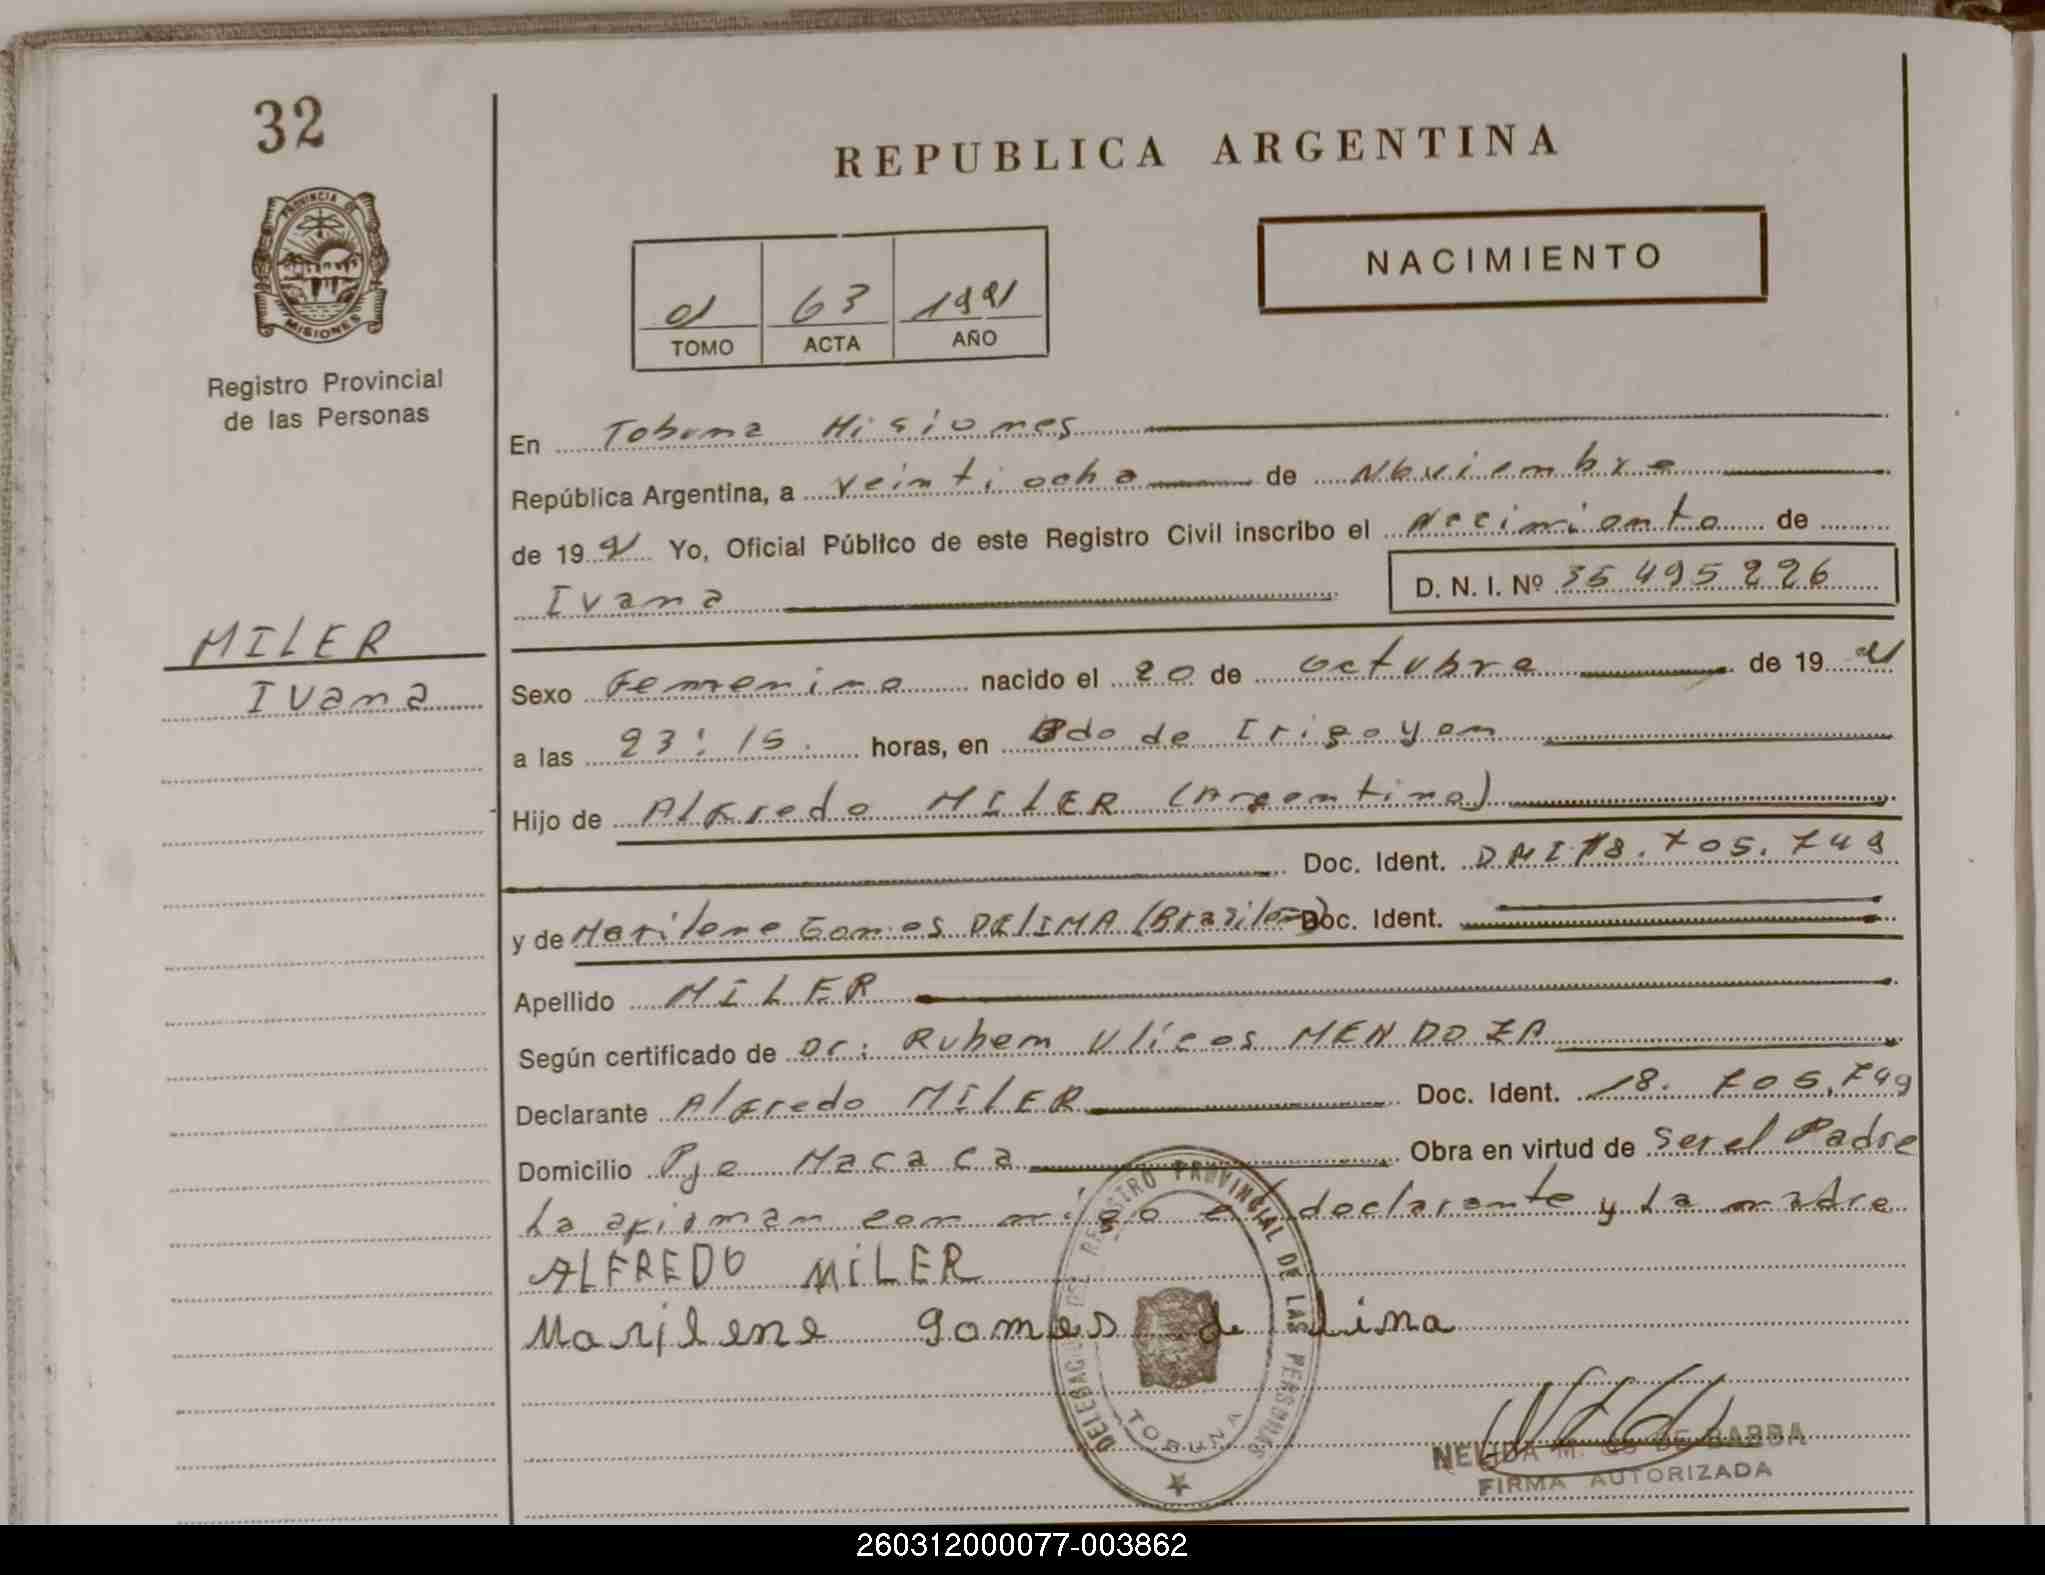 32
REPUBLICA ARGENTINA
PROVINCIA DE
MISIONES
NACIMIENTO
01 63 1991
TOMO ACTA AÑO
Registro Provincial
de las Personas
En Tobuna Misiones
República Argentina, a veinti ocho de Noviembre
de 19 91 Yo, Oficial Público de este Registro Civil inscribo el Nacimiento de
Ivana D. N. I. Nº 35 495 226
MILER
Ivana
Sexo Femenino nacido el 20 de octubre de 19 91
a las 23:15 horas, en Bdo de Irigoyen
Hijo de Alfredo MILER (Argentino)
Doc. Ident. DNI 18.705.749
y de Marilene Gomes DELIMA (Brasileña) Doc. Ident.
Apellido MILER
Según certificado de Dr: Ruben Ulices MENDOZA
Declarante Alfredo MILER Doc. Ident. 18.705.749
Domicilio Pje Macaca Obra en virtud de ser el Padre
La afirman con migo el declarante y La madre
ALFREDO MiLER
Marilene gomes de Lima
DELEGACION DEL REGISTRO PROVINCIAL DE LAS PERSONAS
TOBUNA
NELIDA M. DE BABBA
FIRMA AUTORIZADA
260312000077-003862